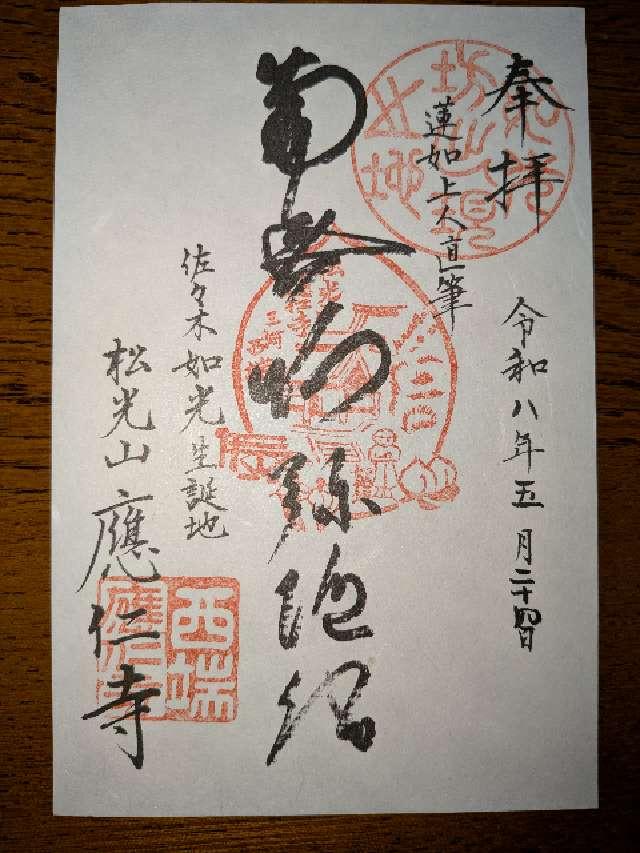 奉拝
令和八年五月二十四日
蓮如上人直筆
南無阿弥陀仏
佐々木如光生誕地
松光山應仁寺
西端
應仁寺